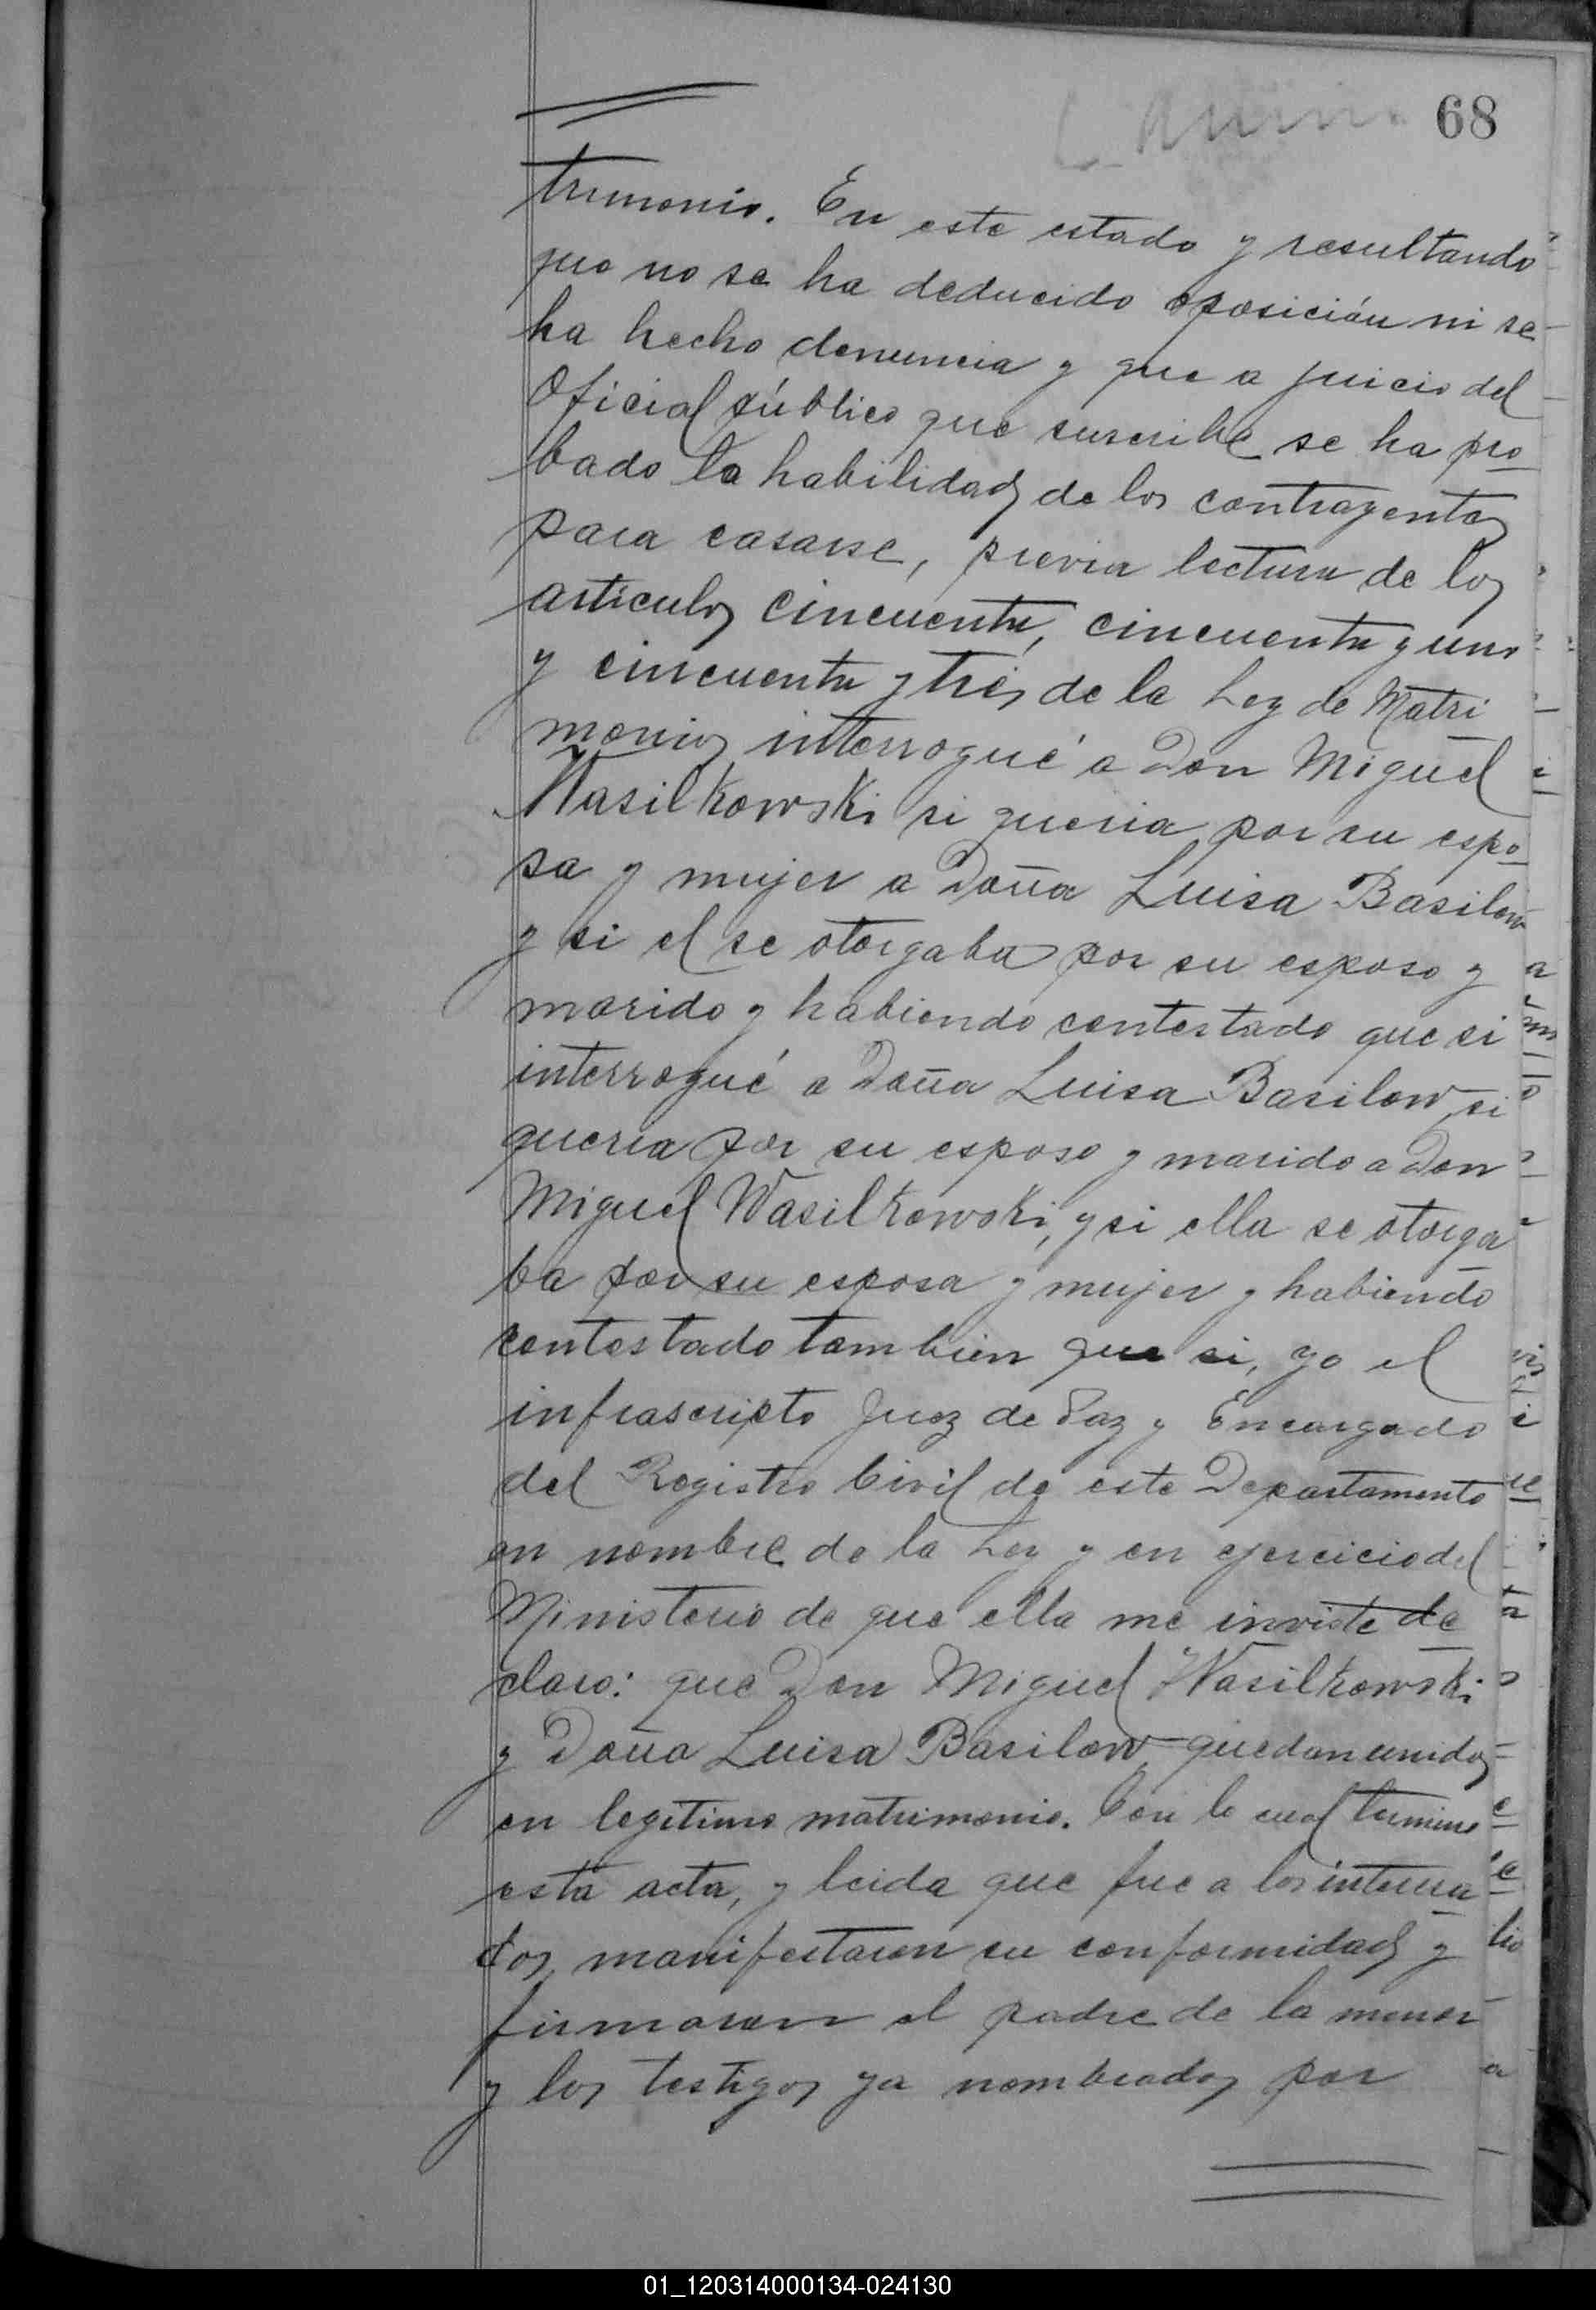 68
trimonio. En este estado y resultando
que no se ha deducido oposición ni se
ha hecho denuncia y que a juicio del
Oficial público que suscribe se ha pro
bado la habilidad de los contrayentes
para casarse, previa lectura de los
articulos cincuenta, cincuenta y uno
y cincuenta y tres de la Ley de Matri
monio, interrogué a Don Miguel
Wasilkowski si queria por su espo
sa y mujer a Doña Luisa Basilow
y si el se otorgaba por su esposo y
marido y habiendo contestado que si
interrogué a Doña Luisa Basilow, si
queria por su esposo y marido a Don
Miguel Wasilkowski, y si ella se otorga
ba por su esposa y mujer y habiendo
contestado tambien que si, yo el
infrascripto Juez de Paz y Encargado
del Registro Civil de este Departamento
en nombre de la Ley y en ejercicio del
Ministerio de que ella me inviste de
claro: que Don Miguel Wasilkowski
y Doña Luisa Basilow, quedan unidos
en legitimo matrimonio. Con lo cual termino
esta acta, y leida que fue a los interesa
dos, manifestaron su conformidad y
firmaron el padre de la menor
y los testigos ya nombrados por
01_120314000134-024130